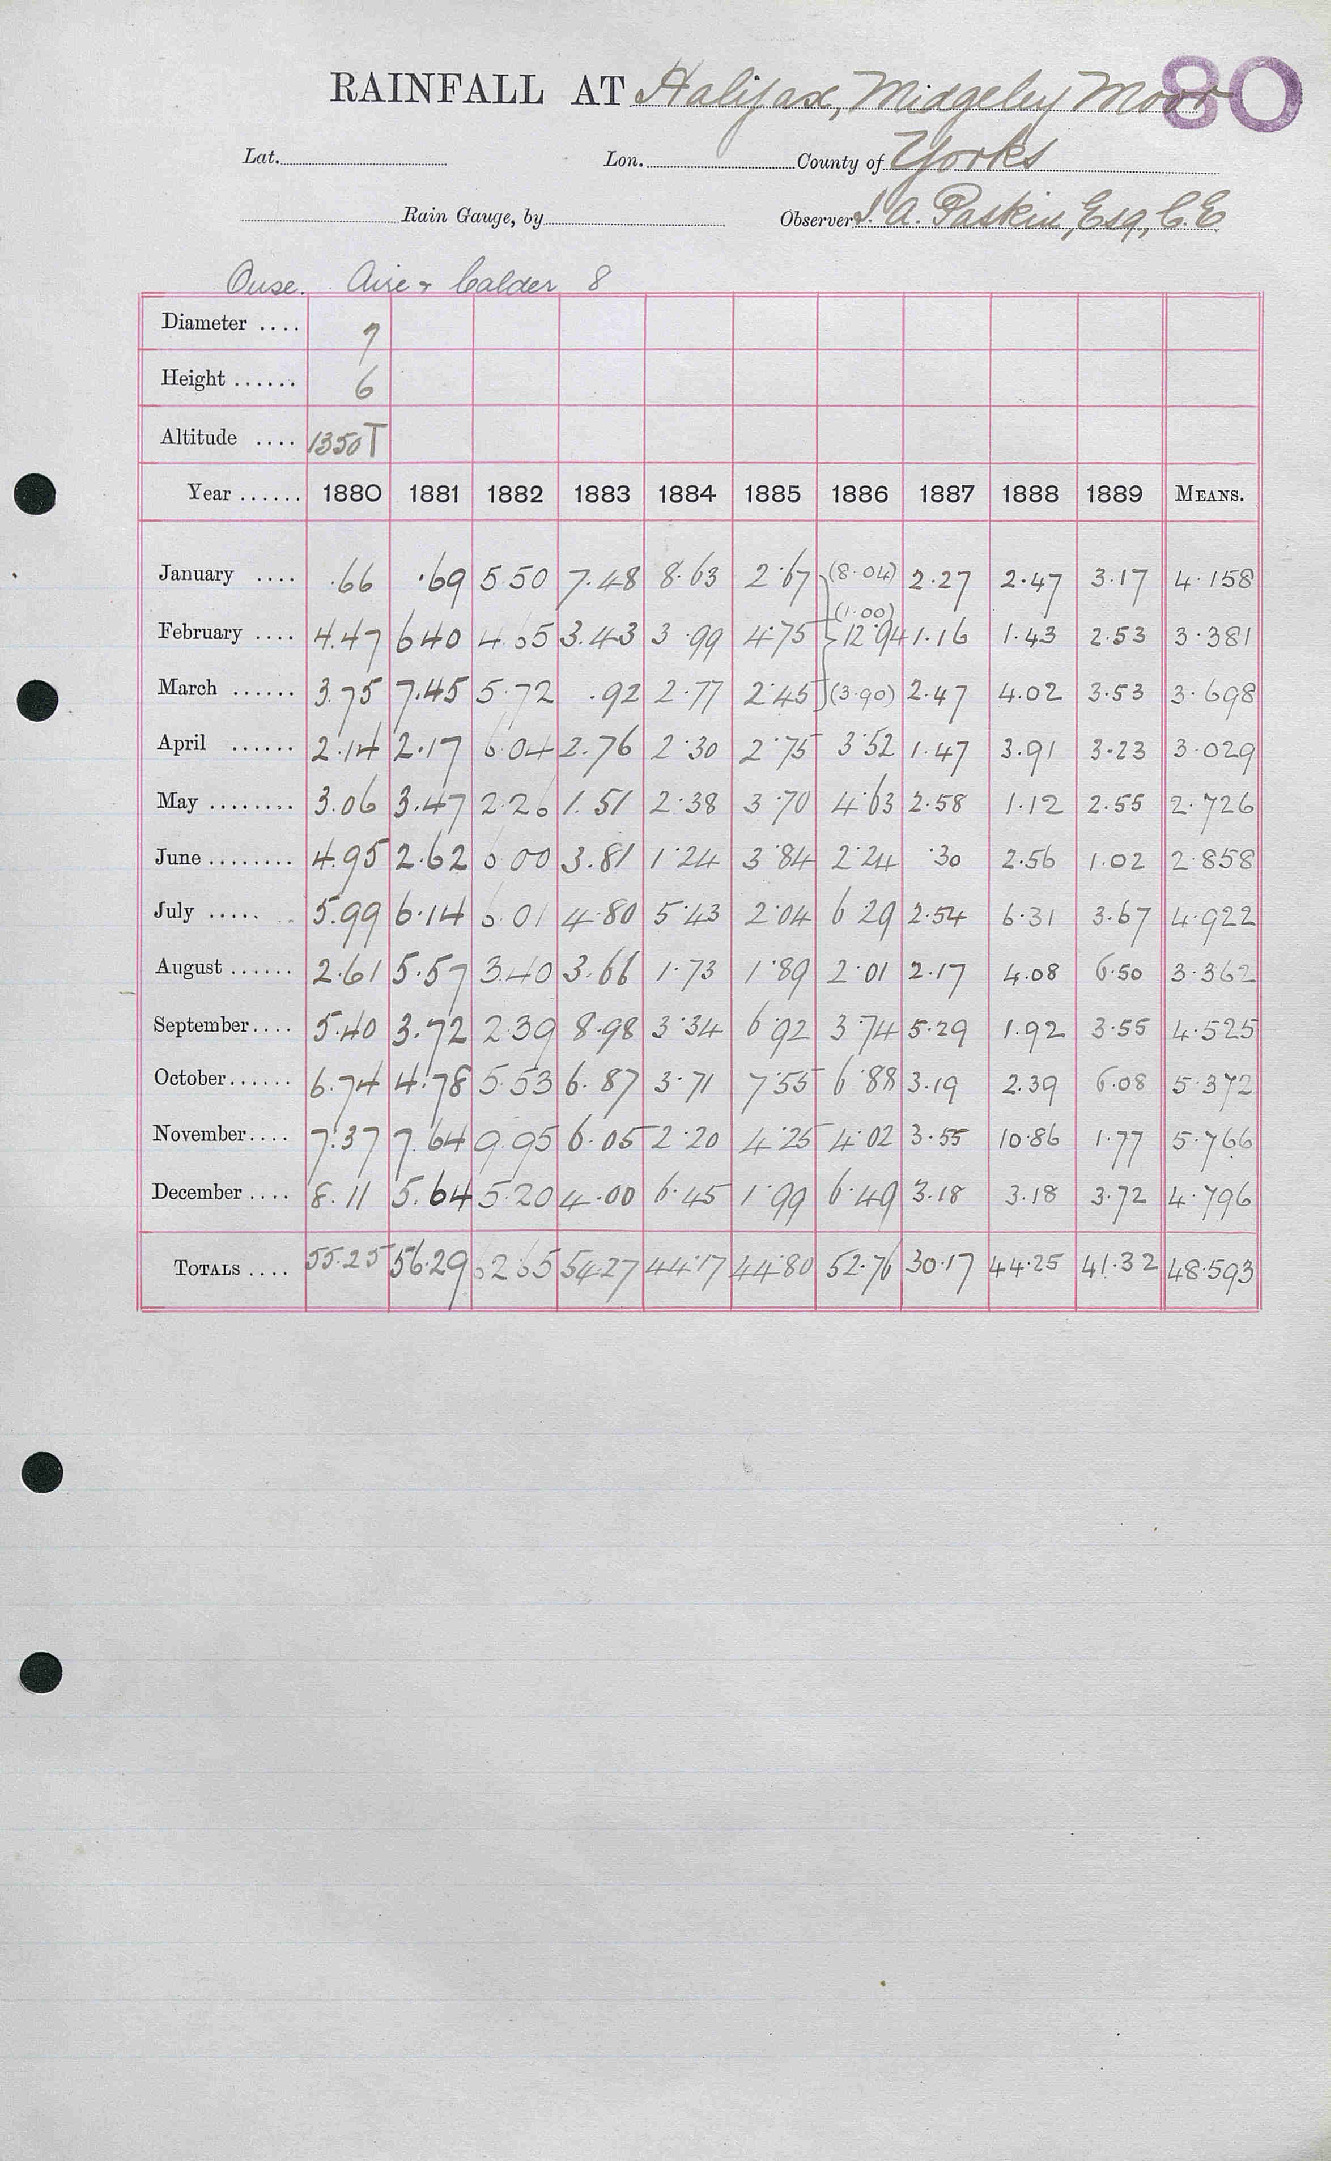 RAINFALL AT Halifax, Midgeley Moor 80
Lat. Lon. County of Yorks
Rain Gauge, by Observer J. A. Paskin, Esq, C.E
Ouse. Aire & Calder 8
Diameter .... 7
Height ...... 6
Altitude .... 1350 T
Year ...... 1880 1881 1882 1883 1884 1885 1886 1887 1888 1889 MEANS.
January .... .66 .69 5.50 7.48 8.63 2.67 (8.04) 2.27 2.47 3.17 4.158
(1.00)
February .... 4.47 6.40 4.65 3.43 3.99 4.75 12.94 1.16 1.43 2.53 3.381
March ...... 3.75 7.45 5.72 .92 2.77 2.45 (3.90) 2.47 4.02 3.53 3.698
April ...... 2.14 2.17 6.04 2.76 2.30 2.75 3.52 1.47 3.91 3.23 3.029
May ........ 3.06 3.47 2.26 1.51 2.38 3.70 4.63 2.58 1.12 2.55 2.726
June ........ 4.95 2.62 6.00 3.81 1.24 3.84 2.24 .30 2.56 1.02 2.858
July ..... 5.99 6.14 6.01 4.80 5.43 2.04 6.29 2.54 6.31 3.67 4.922
August ...... 2.61 5.57 3.40 3.66 1.73 1.89 2.01 2.17 4.08 6.50 3.362
September.... 5.40 3.72 2.39 8.98 3.34 6.92 3.74 5.29 1.92 3.55 4.525
October...... 6.74 4.78 5.53 6.87 3.71 7.55 6.88 3.19 2.39 6.08 5.372
November.... 7.37 7.64 9.95 6.05 2.20 4.25 4.02 3.55 10.86 1.77 5.766
December .... 8.11 5.64 5.20 4.00 6.45 1.99 6.49 3.18 3.18 3.72 4.796
TOTALS .... 55.25 56.29 62.65 54.27 44.17 44.80 52.76 30.17 44.25 41.32 48.593